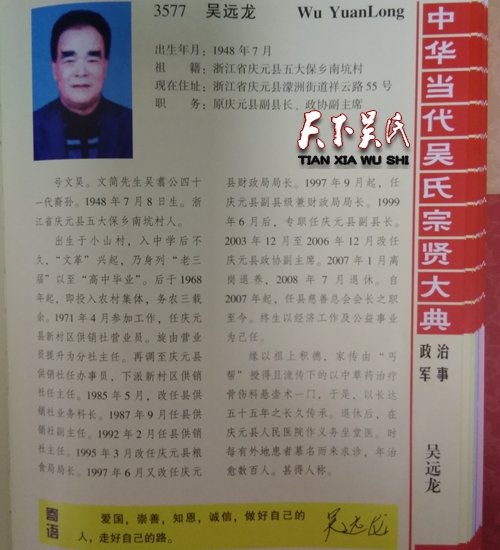 3577 吴远龙 Wu YuanLong
出生年月：1948 年 7 月
祖 籍：浙江省庆元县五大保乡南坑村
现在住址：浙江省庆元县濛洲街道祥云路 55 号
职 务：原庆元县副县长、政协副主席
天下吴氏
TIAN XIA WU SHI
号文昊。文简先生吴翥公四十
一代裔孙。1948 年 7 月 8 日生。浙
江省庆元县五大保乡南坑村人。
出生于小山村，入中学后不
久，“文革” 兴起，乃身列 “老三
届” 以至 “高中毕业”。后于 1968
年起，即投入农村集体，务农三载
余。1971 年 4 月参加工作，任庆元
县新村区供销社营业员。旋由营业
员提升为分社主任。再调至庆元县
供销社任办事员，下派新村区供销
社主任。1985 年 5 月，改任县供销
社业务科长。1987 年 9 月任县供
销社副主任。1992 年 2 月任县供销
社主任。1995 年 3 月改任庆元县粮
食局局长。1997 年 6 月又改任庆元
县财政局局长。1997 年 9 月起，任
庆元县副县级兼财政局局长。1999
年 6 月后，专职任庆元县副县长。
2003 年 12 月至 2006 年 12 月改任
庆元县政协副主席。2007 年 1 月离
岗退养，2008 年 7 月退休。自
2007 年起，任县慈善总会会长之职
至今。终生以经济工作及公益事业
为己任。
缘以祖上积德，家传由 “丐
帮” 授得且流传下的以中草药治疗
骨伤科悬壶术一门，于是，以长达
五十五年之长久传承。退休后，在
庆元县人民医院作义务坐堂医。时
每有外地患者慕名而来求诊，年治
愈数百人。甚得人称。
寄语
爱国，崇善，知恩，诚信，做好自己的
人，走好自己的路。
吴远龙
中华当代吴氏宗贤大典
政治
军事
吴远龙